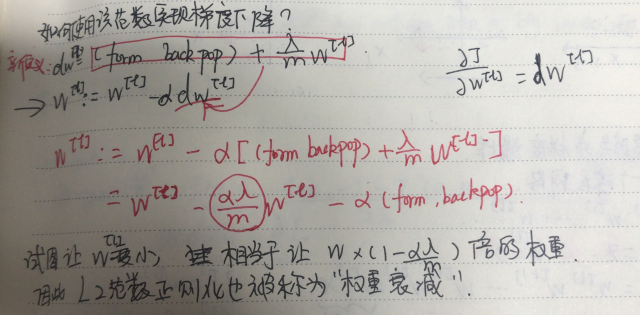 如何使用该范数实现梯度下降?
新定义: dw^[l] = (form backpop) + λ/m w^[l].
∂J/∂w^[l] = dw^[l]
→ w^[l] := w^[l] - α dw^[l]
w^[l] := w^[l] - α [(form backpop) + λ/m w^[l]]
= w^[l] - αλ/m w^[l] - α (form backpop).
试图让 w^[l] 变小, 相当于让 w × (1 - αλ/m) 倍的权重.
因此 L2范数正则化也被称为"权重衰减".